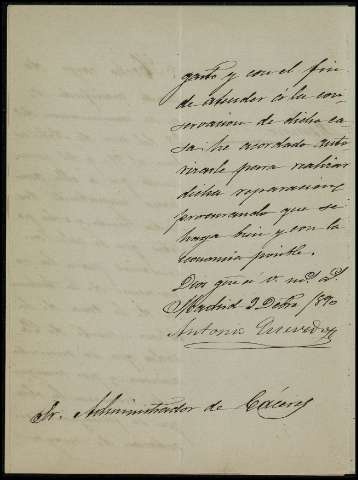 gasto y con el fin
de atender á la con
servacion de dicha ca
sa he acordado auto
rizarle para realizar
dicha reparacion,
procurando que se
haga bien y con la
economia posible.
Dios gue á V. m.s a.s
Madrid 2 1890
Antonio Quevedo
Sr. Administrador de Cáceres